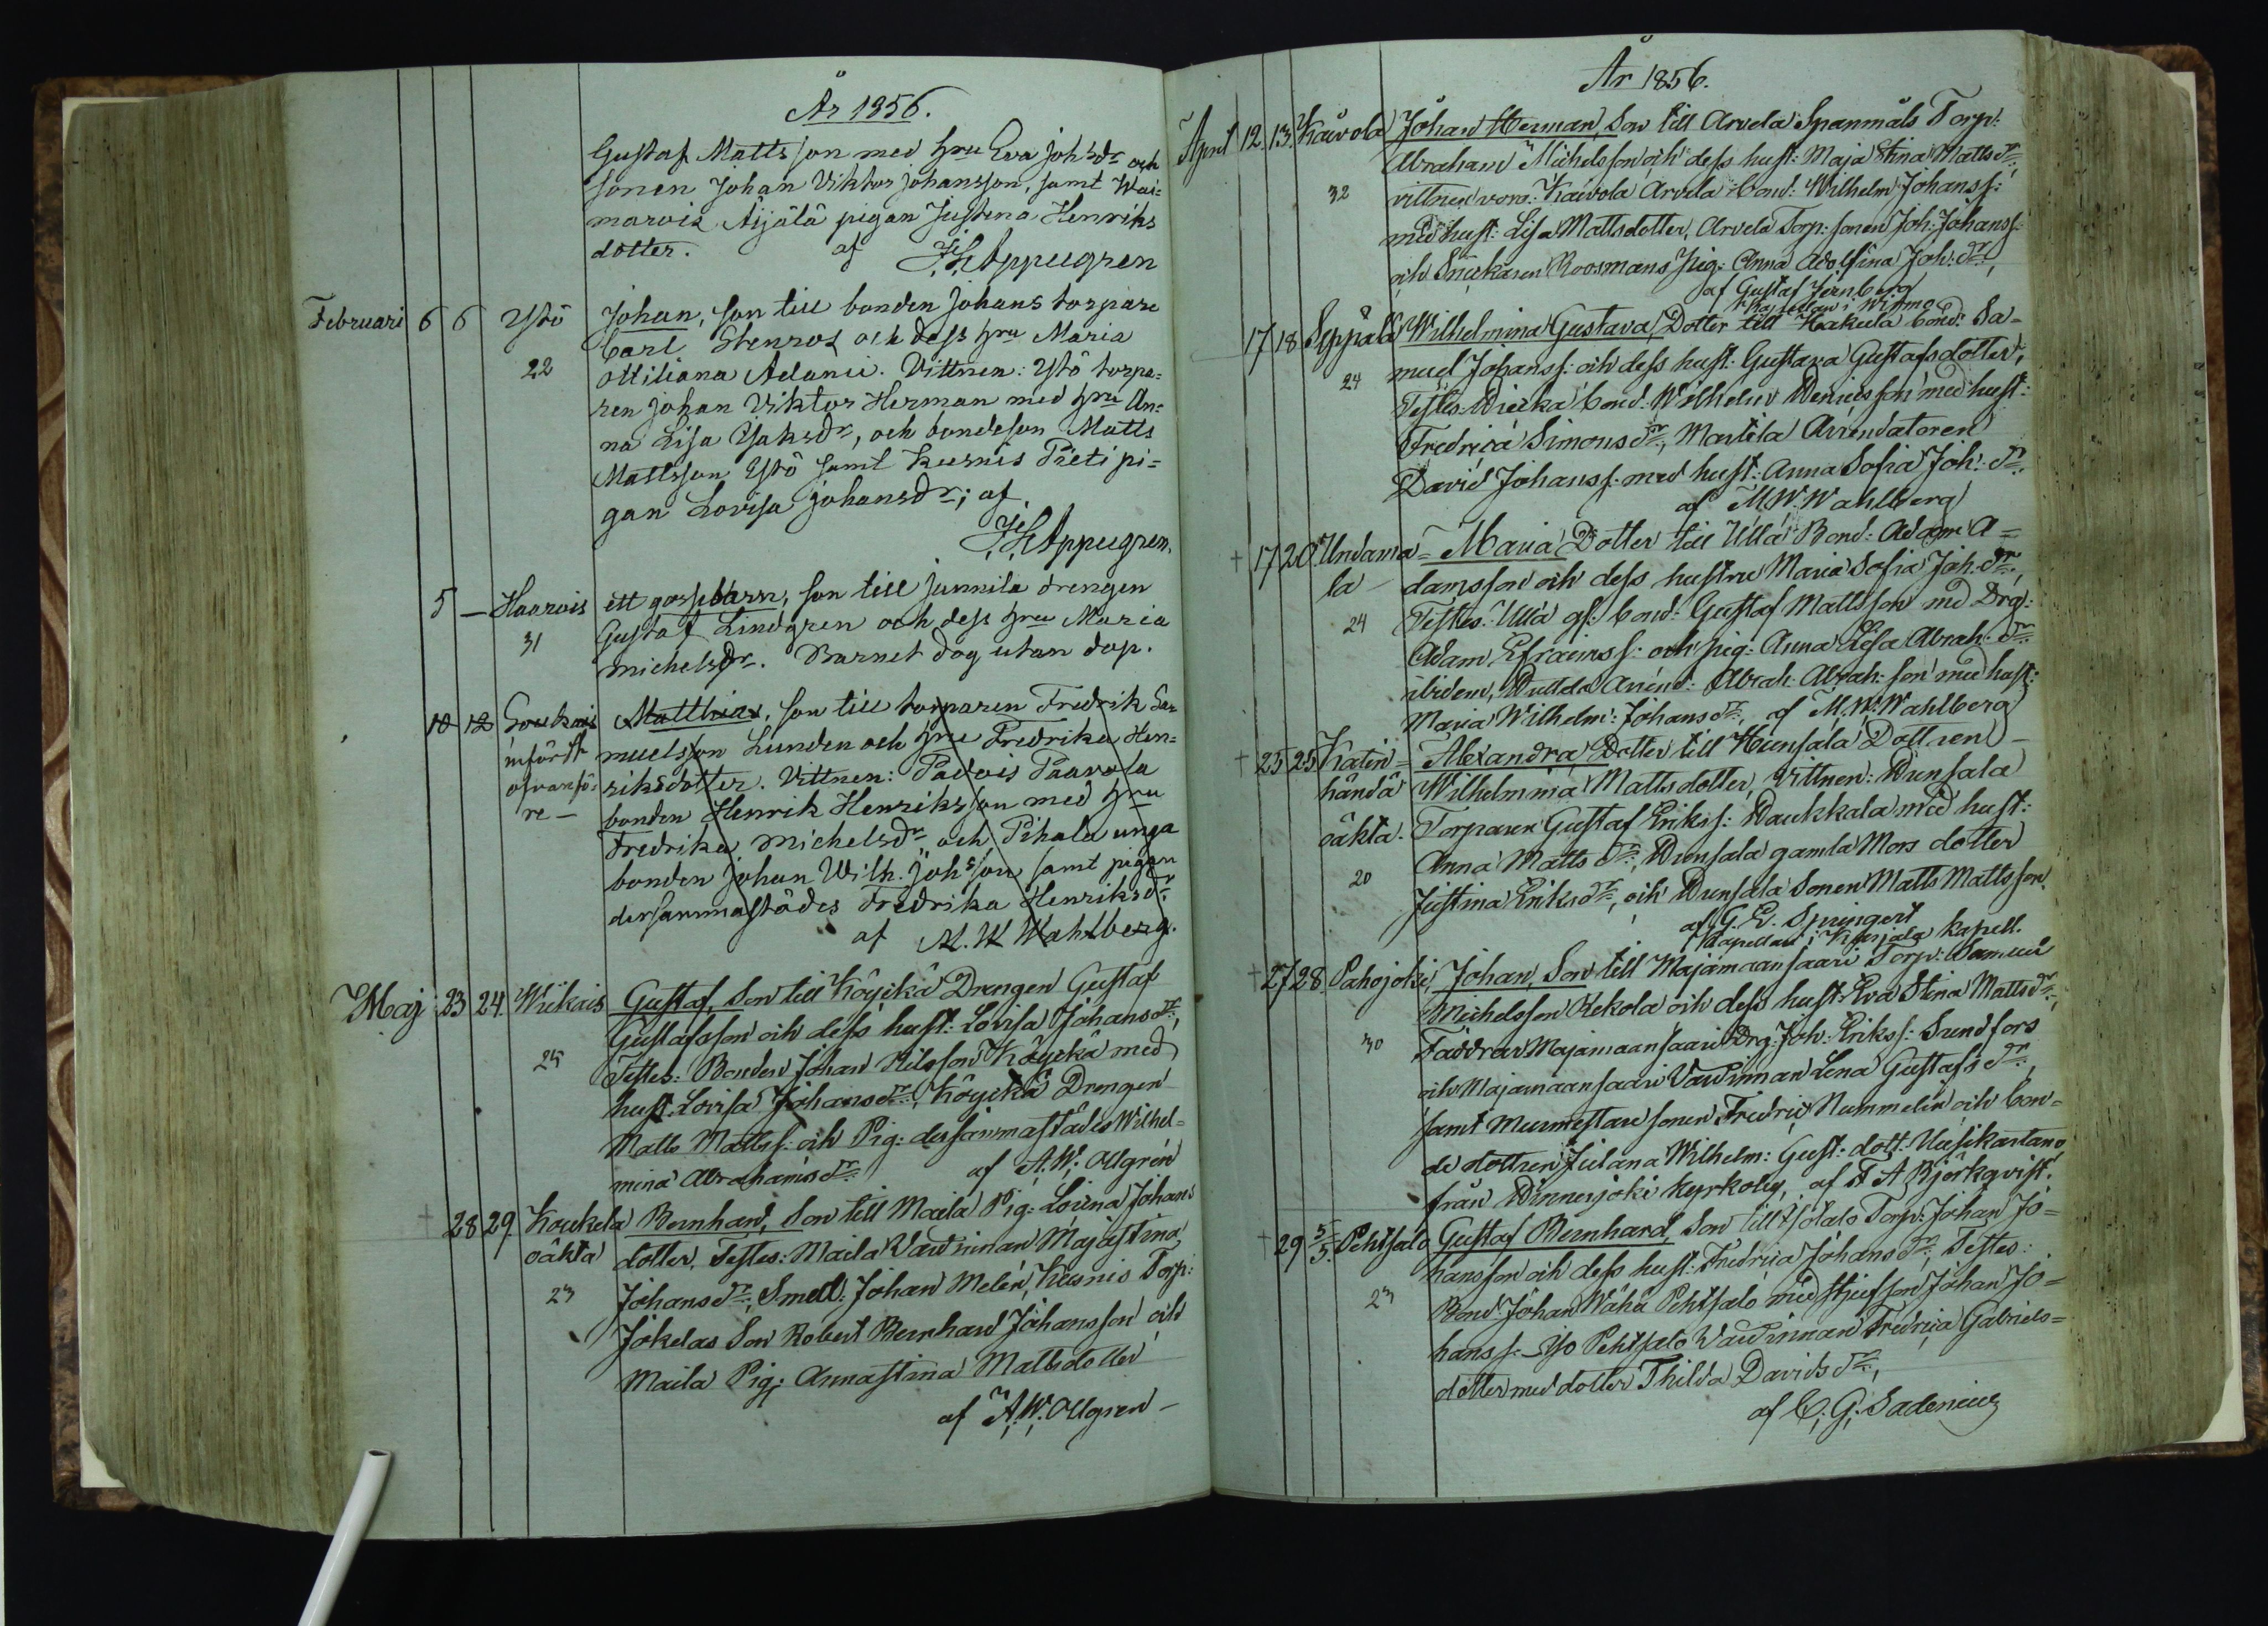 År 1856.
Gustaf Mattsson med hru Eva Johsdr och
sonen Johan Viktor Johansson, samt Wai=
marois Äijälä pigan Justina Henriks
dotter. af J. H. Appelgren
Februari 6 6 Ystö Johan, son till bonden Johans torpare
Carl Stenros och dess hru Maria
22 Ottiliana Adamii. Vittnen: Ystö torpa=
ren Johan Viktor Herman med hru An=
na Lisa Isaksdr, och bondeson Matts
Mattsson Ystö samt Kusnis Pieti pi=
gan Lovisa Johansdr; af
J. H. Appelgren.
5 — Haarois ett gossebarn, son till Junnila drengen
31 Gustaf Lindgren och dess hru Maria
Michelsdr. Barnet dog utan dop.
10 12 Goukois Matthias, son till torparen Fredrik Sa=
infördt muelsson Lunden och hru Fredrika Hen=
ofvanfö= riksdotter. Vittnen: Padois Paavola
re — bonden Henrik Henriksson med hru
Fredrika Michelsdr, och Pihala unga
bonden Johan Wilh. Johsson samt pigan
dersammastädes Fredrika Henriksdr.
af M. W. Wahlberg.
Maj 23 24. Wiikais Gustaf, Son till Köyckä Drengen Gustaf
Gustafsson och dess hust: Lovisa Johans dr,
25 Testes: Bonden Johan Nilsson Köyckä med
hust. Lovisa Johans dr, Köyckä Drengen
Matts Mattss: och Pig: dersammastädes Wilhel=
mina Abrahams dr. af A. W. Allgrén
28 29. Koukela Bernhard, Son till Maila Pig: Lovina Johans
oäkta dotter, Testes: Maila Värdinnan Majastina
23 Johans dr, Smed: Johan Melén, Kusnis Torp:
Jokelas Son Robert Bernhard Johansson och
Maila Pig: Annastina Mattsdotter
af A. W. Allgren —
År 1856.
April 12. 13. Kaivola Johan Herman, Son till Arvela Spanmåls Torp:
Abraham Michelsson och dess hust: Maja Stina Matts dr,
32 vittnen voro: Kaivola Arvela Bond: Wilhelm Johanss:
med hust: Lisa Mattsdotter, Arvela Torp: sonen Joh: Johanss:
och Snickaren Roosmans Pig: Anna Adolfina Joh: dr,
af Gustaf Jernberg
Kapellan i Wirmo
17 18 Seppälä Wilhelmina Gustava, Dotter till Hakula bond: Sa=
24 muel Johanss: och dess hust: Gustava Gustafsdotter,
Testes: bond: Wilhelm med hust:
Fredrica Simons dr, Martila Arrendatoren
David Johanss: med hust: Anna Sofia Joh: dr.
af M. W. Wahlberg
+ 17 20 Undama= Maria Dotter till Ullá Bond: Adam A=
la — damsson och dess hustru Maria Sofia Joh. dr,
24 Testes: Ullá gl: bond: Gustaf Mattsson med Drg:
Adam Efraimss: och pig: Anna Lisa Abrah. dr.
ibidem, Arrend: Abrah: Abrah:son med hust:
Maria Wilhelm: Johans dr, af M. W. Wahlberg
+ 25 25 Katin= Alexandra Dotter till Hunsala Dottren —
händä Wilhelmina Mattsdotter, Vittnen: Dunsala
oäkta. Torparen Gustaf Erikss: Daukkala med hust:
Anna Matts dr, Dunsala gamla Mors dotter
20 Justina Eriks dr, och Dunsala Sonen Matts Mattsson
af G. E. Springert
Kapellan i Karjala kapell.
+ 27 28. Pahojoki, Johan, Son till Majamaansaari Torp: Samuel
Michelsson Rekola och dess hust: Eva Stina Matts dr,
30 Faddrar Majamaansaari Drg: Joh: Erikss: Sundfors
och Majamaansaari Värdinnan Lena Gustafs dr,
samt Murmestare sonen Fredric Nummelin och bon=
de dottren Juliana Wilhelm: Gust: dott: Uusikartano
från Winnerjoki kyrkoby, af F. A Björkqvist.
+ 29 5/5. Pehtsalo Gustaf Bernhard, Son till Isotalo Torp: Johan Jo=
hansson och dess hust: Fredrica Johans dr, Testes:
23 Bond: Johan Wähä Pehtsalo med stjufson Johan Jo=
hanss: Iso Pehtsalo Värdinnan Fredrica Gabriels=
dotter med dotter Thilda Davids dr,
af C. G. Sadenius